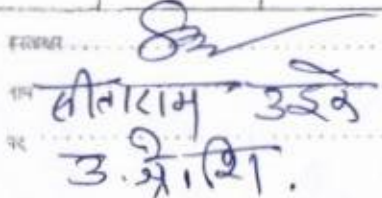 हस्ताक्षर
नाम सीताराम उइके
पद उ. श्रे. शि.